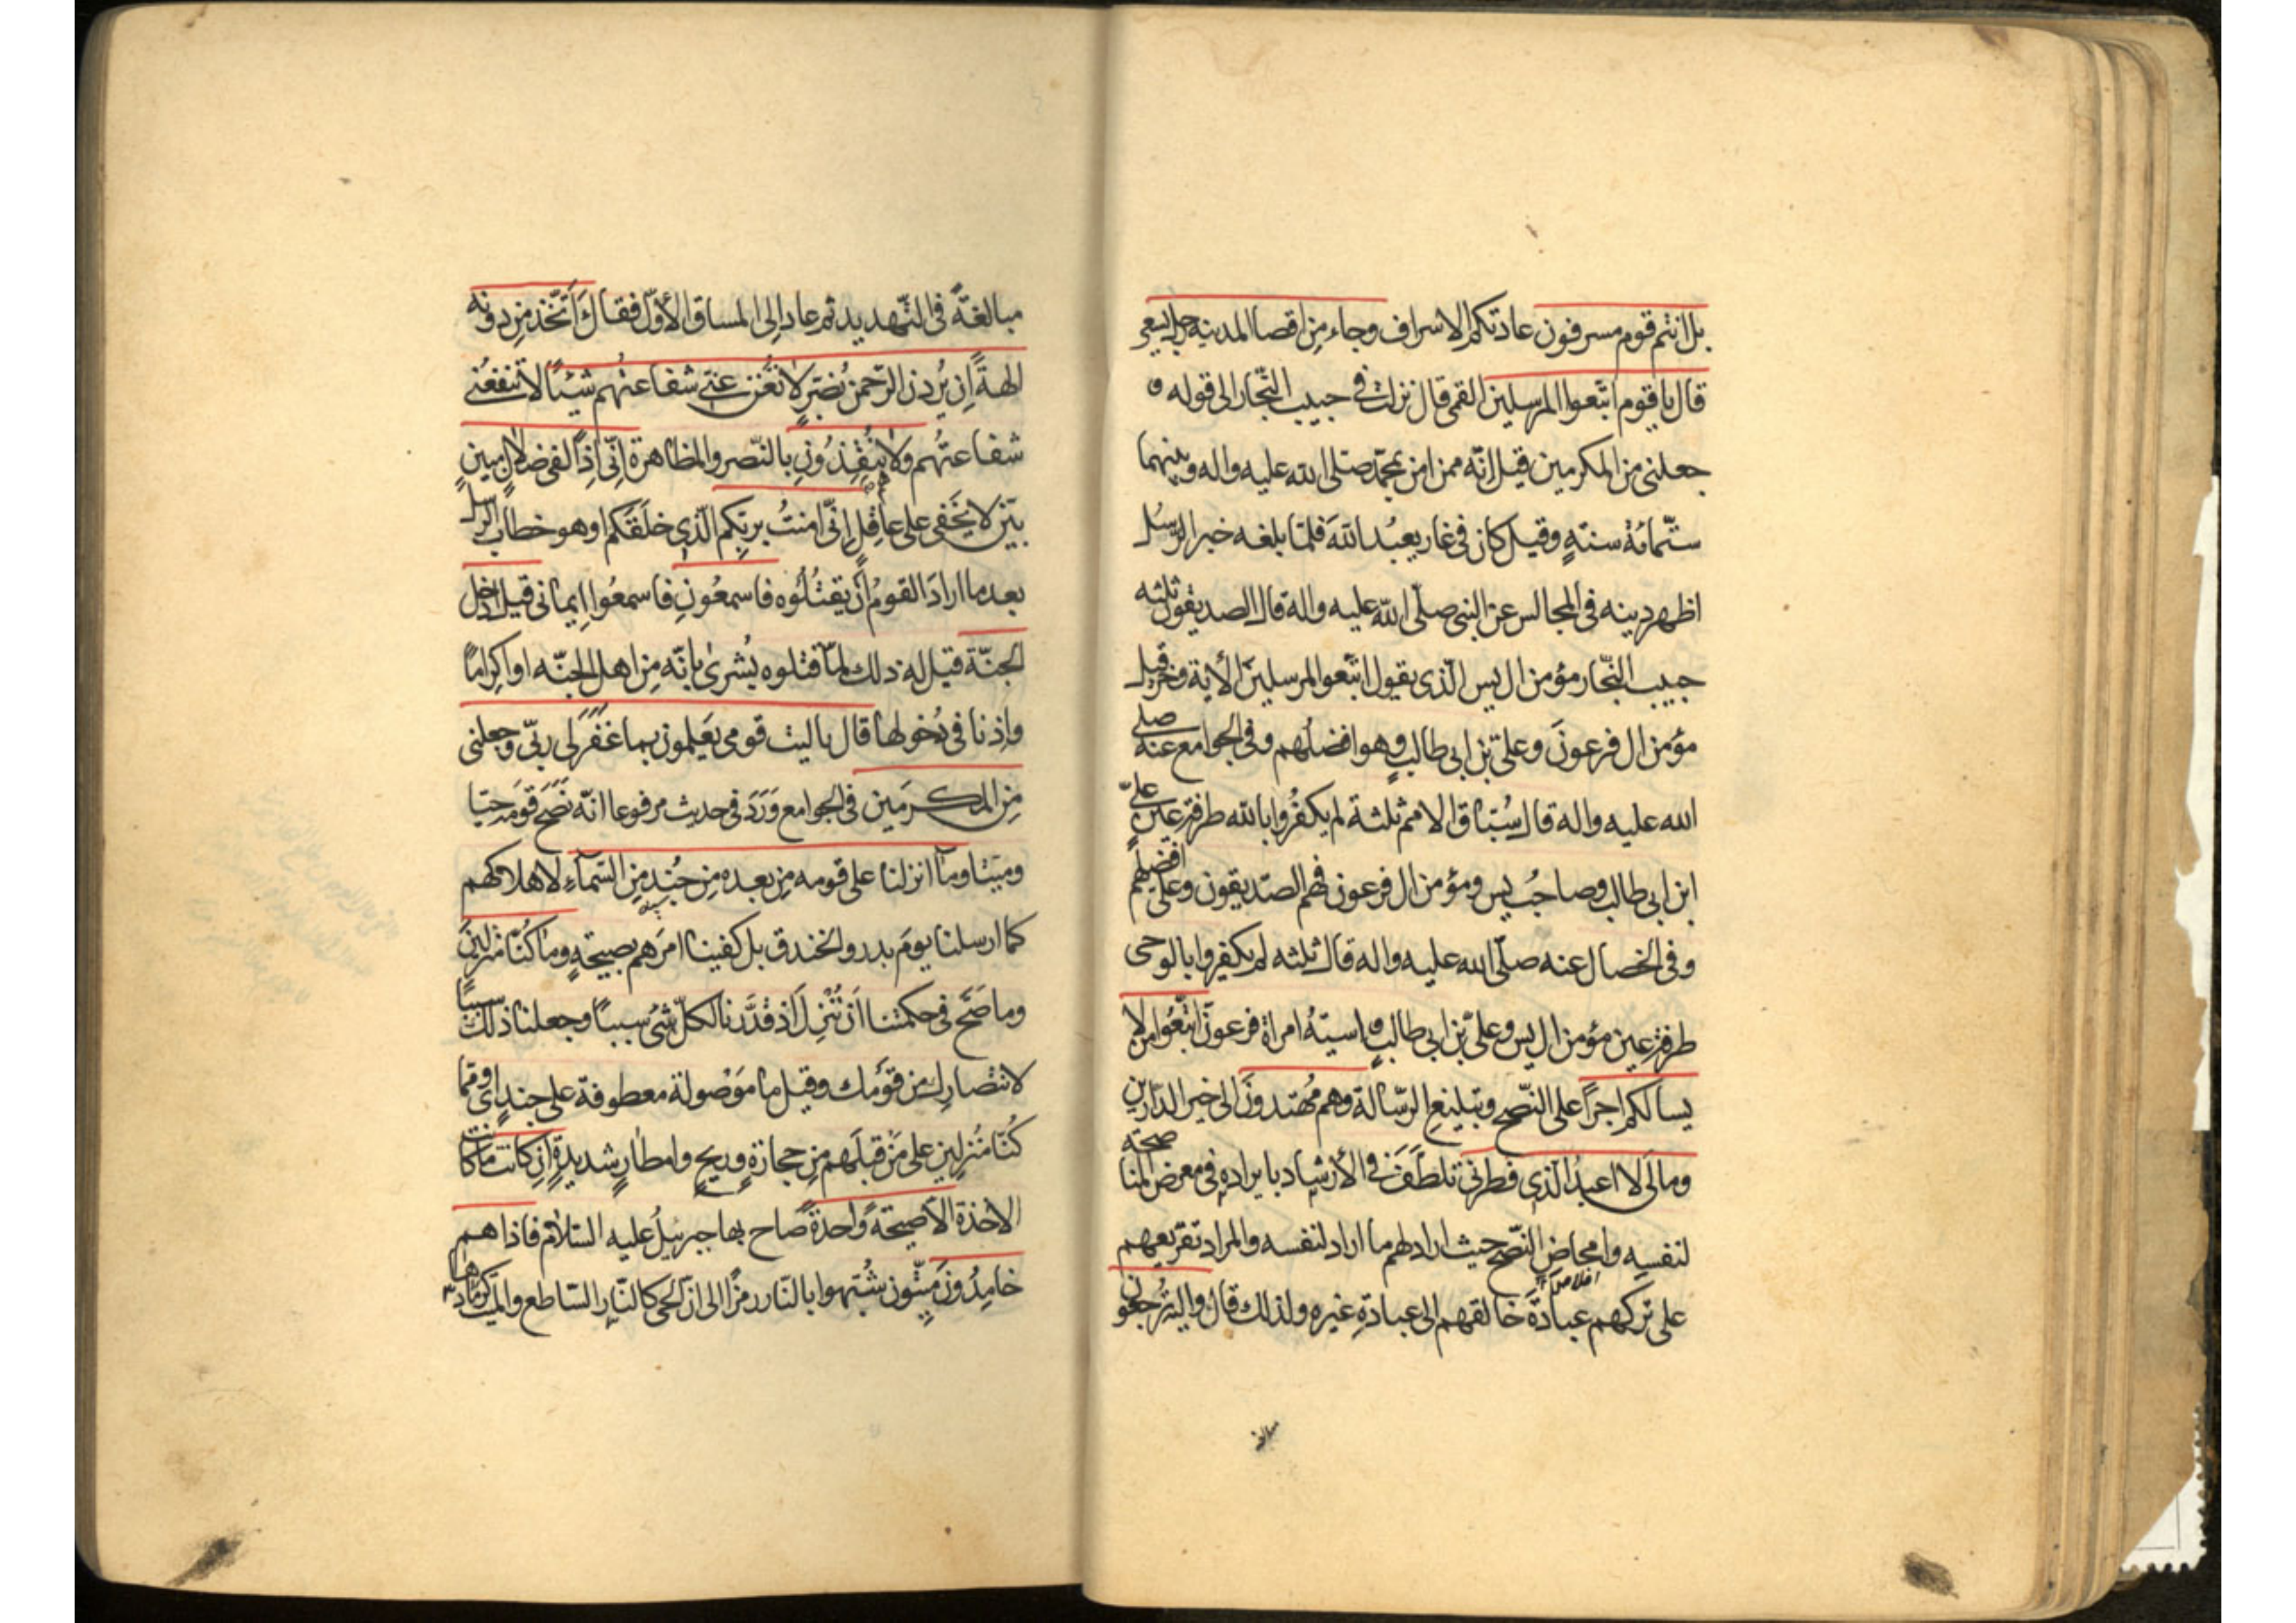 بل انتم قوم مسرفون عادتكم الاسراف وجاء من اقصا المدينه رجل يسعى
قال يا قوم اتبعوا المرسلين القمى قال نزلت فى حبيب النجّار الى قوله و
جعلنى من المكرمين قيل انّه ممن امن بمحمّد صلى الله عليه واله وبينهما
ستّمائة سنةٍ وقيل كان فى غار يعبُد اللهَ فلمّا بلغه خبر الرّسُل
اظهر دينه فى المجالس عن النبى صلّى الله عليه واله قال الصديقون ثلثه
حبيب النجّار مؤمن ال يس الّذى يقول اتبّعوا المرسلين الأية وحزقيل
مؤمن ال فرعونَ وعلىّ بن ابى طالبٍ وهو افضلُهم وفى الجوامع عنه صلى
الله عليه واله قال سُبّاق الامم ثلثة لم يكفُروا بالله طرفة عينٍ علىّ
ابن ابى طالب وصاحبُ يس ومؤمن ال فرعون فهم الصّديقون وعلى افضلهم
وفى الخصال عنه صلّى الله عليه واله قال ثلثه لم يكفروا بالوحى
طرفة عين مؤمن ال يس وعلىّ بن ابى طالبٍ واسيّهُ امراة فرعونَ اتّبعُوا من لا
يسالكم اجرًا على النّصح وتبليغ الرّسالة وهم مُهتدونَ الى خير الدّارين
ومالى لا اعبدُ الّذى فطرنى تلطّفَ فى الأرشاد بايراده فى معرض المناصحة
لنفسِه وامحاضِ النّصح حيث اراد لهم ما اراد لنفسه والمراد تقريعهم
على تركهم عبادةَ خالقهم الى عبادةِ غيره ولذلك قال واليه تُرجعون
مبالغةً فى التّهديد ثم عاد الى المساق الأوّل فقال ءَأتّخذ من دونه
الهةً اِن يُردن الرّحمن بضرٍ لا تغُن عنّى شفاعتُهم شيئًا لا تنفعُنى
شفاعتُهم ولا يُنقِذُونِ بالنّصر والمظاهرة انّى اِذًا لفى ضلالٍ مبينٍ
بيّن لا يَخفى على عاقلٍ اِنّى امنتُ بربّكم الّذى خلَقكم او هو خطاب للرسل
بعد ما ارادَ القومُ اَن يقتُلُوه فاسمعُونِ فاسمعُوا اِيمانى قيل ادخل
الجنّة قيل له ذلك لمّا قتلوه بُشرىٰ بانّه مِن اهل الجنّه او اكرامًا
واِذنا فى دُخولها قال ياليت قومى يَعلمون بما غفَر لى ربّى وجعلنى
مِن المكرَمين فى الجوامع وَرَدَ فى حديث مرفوعا انّه نَصَحَ قومَه حيّا
وميّتا وما انزلنا على قومه مِن بعده مِن جُندٍ مِن السّماءِ لاهلاكهم
كما ارسلنا يومَ بدر والخندق بل كفينا امرَهم بصيحةٍ وما كُنّا مُنزلينَ
وما صَحّ فى حكمتنا اَن نُنزِل اذ قَدّرنا لكلّ شئٍ سببًا وجعلنا ذلك سببًا
لانتصارك من قَومِك وقيل ما مَوصُولة معطوفة على جندٍ اى وممّا
كُنّا مُنزلين على مَن قبلَهم من حجارةٍ وريحٍ وامطارٍ شديدةٍ اِن كانت ما كانت
الاخذة الاّ صيحةً واحدةً صاح بها جبرئيلُ عليه السّلام فاذا هم
خامِدُونَ ميّتون شُبّهوا بالنّار رمزًا الى انّ الحى كالنّار السّاطع والميّت كرمادها